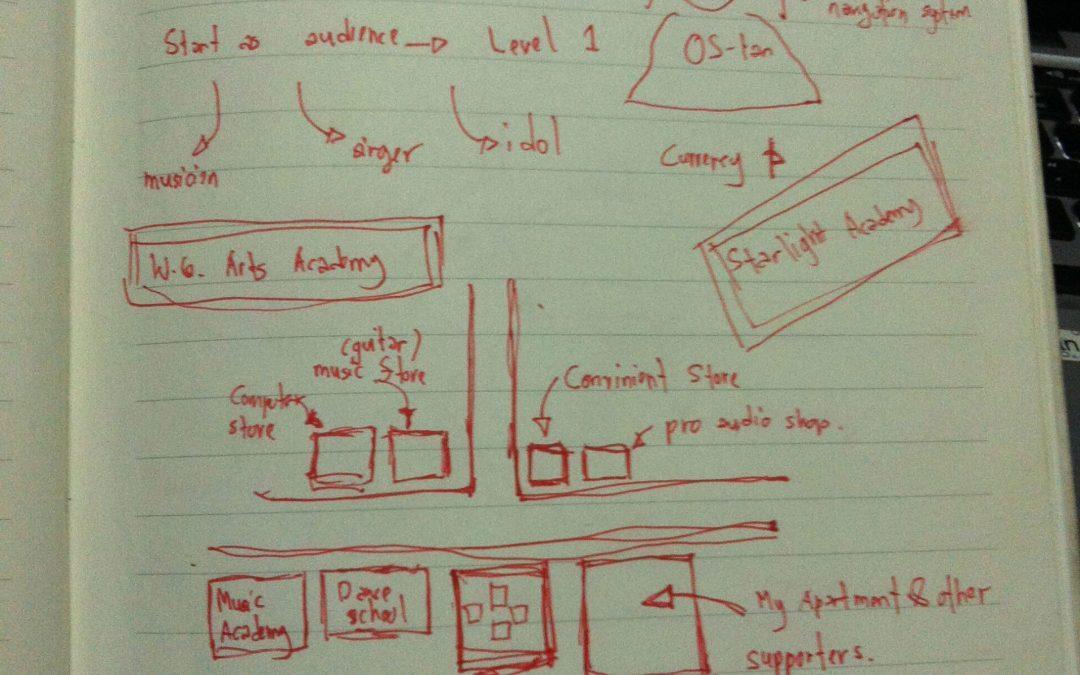 navigation system
Start as audience → Level 1
OS-tan
musician
singer
idol
Currency $
W.G. Arts Academy
Starlight Academy
(guitar)
music store
Computer
store
Conviniont Store
pro audio shop.
Music
Academy
Dance
school
My Apartment & other
supporters.